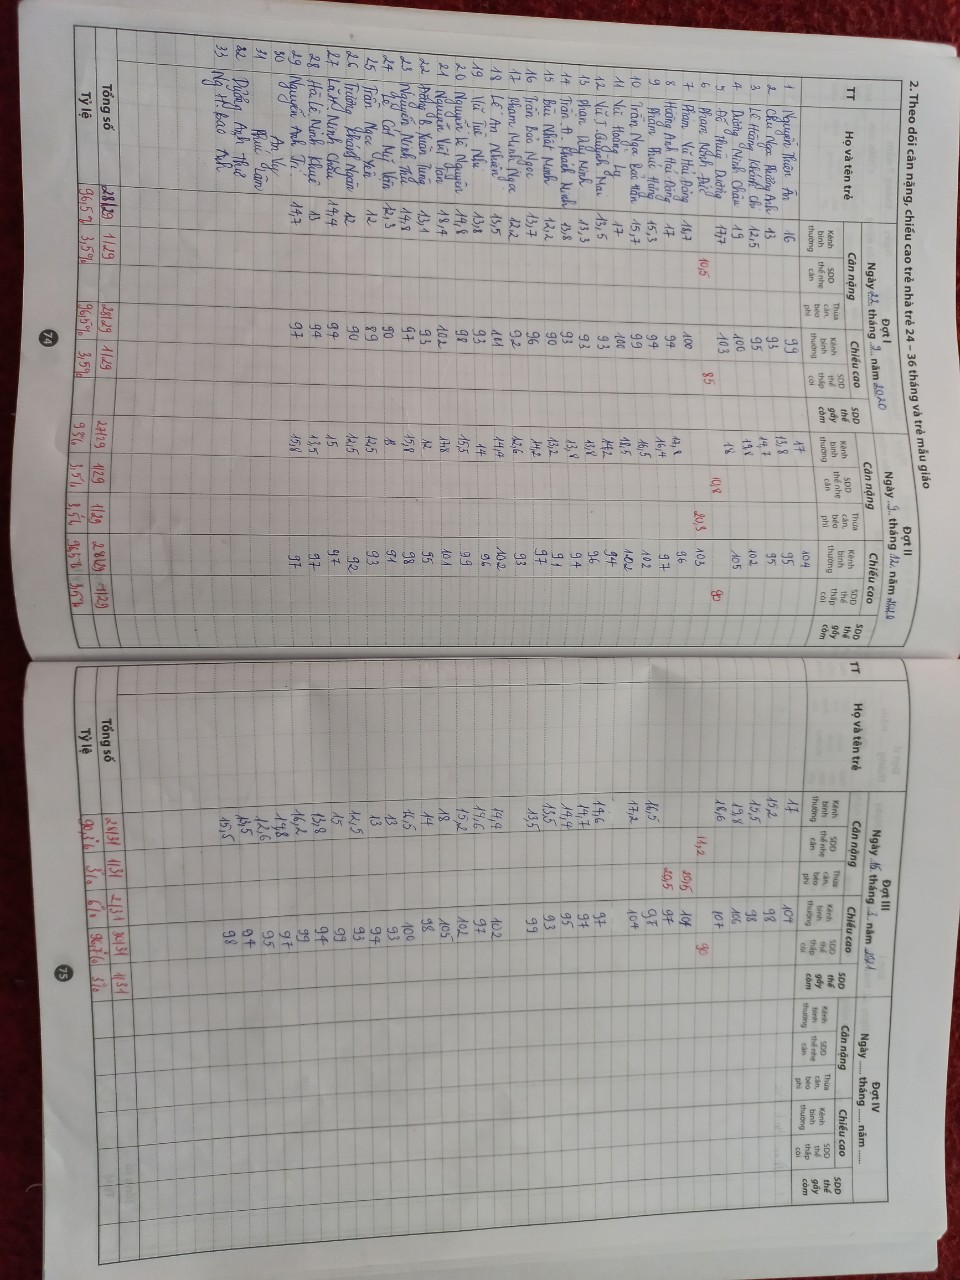 2. Theo dõi cân nặng, chiều cao trẻ nhà trẻ 24 – 36 tháng và trẻ mẫu giáo
TT Họ và tên trẻ
Đợt I
Ngày 22 tháng 9 năm 2020
Cân nặng Chiều cao SDD thể gầy còm
Kênh bình thường SDD thể nhẹ cân Thừa cân, béo phì Kênh bình thường SDD thể thấp còi
Đợt II
Ngày 9 tháng 12 năm 2020
Cân nặng Chiều cao SDD thể gầy còm
Kênh bình thường SDD thể nhẹ cân Thừa cân, béo phì Kênh bình thường SDD thể thấp còi
1 Nguyễn Thiên Ân 16 99 17 104
2 Chu Ngọc Phương Anh 13 93 13,8 95
3 Lê Hoàng Khánh Chi 12,5 95 14,7 95
4 Dương Minh Châu 19 100 19,8 102
5 Đỗ Thuỳ Dương 17,7 103 18 105
6 Phạm Minh Đức 10,5 85 10,8 90
7 Phạm Vũ Hải Đăng 18,7 100 20,3 103
8 Hoàng Anh Hải Đăng 17 94 96
9 Phạm Phúc Hưng 15,3 94 16,4 97
10 Trần Ngọc Bảo Hân 15,7 99 16,5 102
11 Vũ Hoàng Ly 17 100 18,5 102
12 Vũ T. Quỳnh Mai 13,5 93 14,2 94
13 Phan Duy Minh 13,3 93 13,8 96
14 Trần Đ. Khánh Minh 13,8 93 13,8 94
15 Bùi Nhật Minh 12,2 90 13,2 91
16 Trần Bảo Ngọc 13,7 96 14,2 97
17 Phạm Minh Ngọc 12,2 92 12,6 93
18 Lê An Nhiên 13,5 101 14,4 102
19 Vũ Tuệ Nhi 13,8 93 14 96
20 Nguyễn Lê Nguyên 14,8 98 15,5 99
21 Nguyễn Viết Tân 18,4 102 17,8 101
22 Đồng B. Xuân Tùng 13,1 93 12 95
23 Nguyễn Minh Thư 14,8 97 15,8 98
24 Lê Cát Mỹ Vân 12,3 90 91
25 Trần Ngọc Yến 12 89 12,5 93
26 Trương Khánh Ngân 12 90 12,5 92
27 Lã H. Minh Châu 14,4 94 15 97
28 Hà Lê Minh Khuê 13 94 13,5 97
29 Nguyễn Anh Trí 14,7 97 15,8 97
30 An Vy
31 Phúc Lâm
32 Dương Anh Thư
33 Ng H. Bảo Anh
Tổng số 28/29 1/29 28/29 1/29 27/29 1/29 1/29 28/29 1/29
Tỷ lệ 96,5% 3,5% 96,5% 3,5% 93% 3,5% 3,5% 96,5% 3,5%
74
TT Họ và tên trẻ
Đợt III
Ngày 15 tháng 3 năm 2021
Cân nặng Chiều cao SDD thể gầy còm
Kênh bình thường SDD thể nhẹ cân Thừa cân, béo phì Kênh bình thường SDD thể thấp còi
Đợt IV
Ngày ...... tháng ...... năm ......
Cân nặng Chiều cao SDD thể gầy còm
Kênh bình thường SDD thể nhẹ cân Thừa cân, béo phì Kênh bình thường SDD thể thấp còi
17 104
15,2 98
15,5 98
19,8 106
18,6 107
11,2 90
20,5 104
20,5 97
16,5 98
17,2 104
14,6 97
14,7 97
14,4 95
13,5 93
13,5 99
14,4 102
14,6 97
15,2 102
18 105
14 98
16,5 100
13 93
13 94
12,5 93
15 99
13,8 94
16,2 99
14,8 97
12,6 95
13,5 94
15,5 98
Tổng số 28/31 1/31 2/31 30/31 1/31
Tỷ lệ 90,3% 3% 6% 96,7% 3%
75